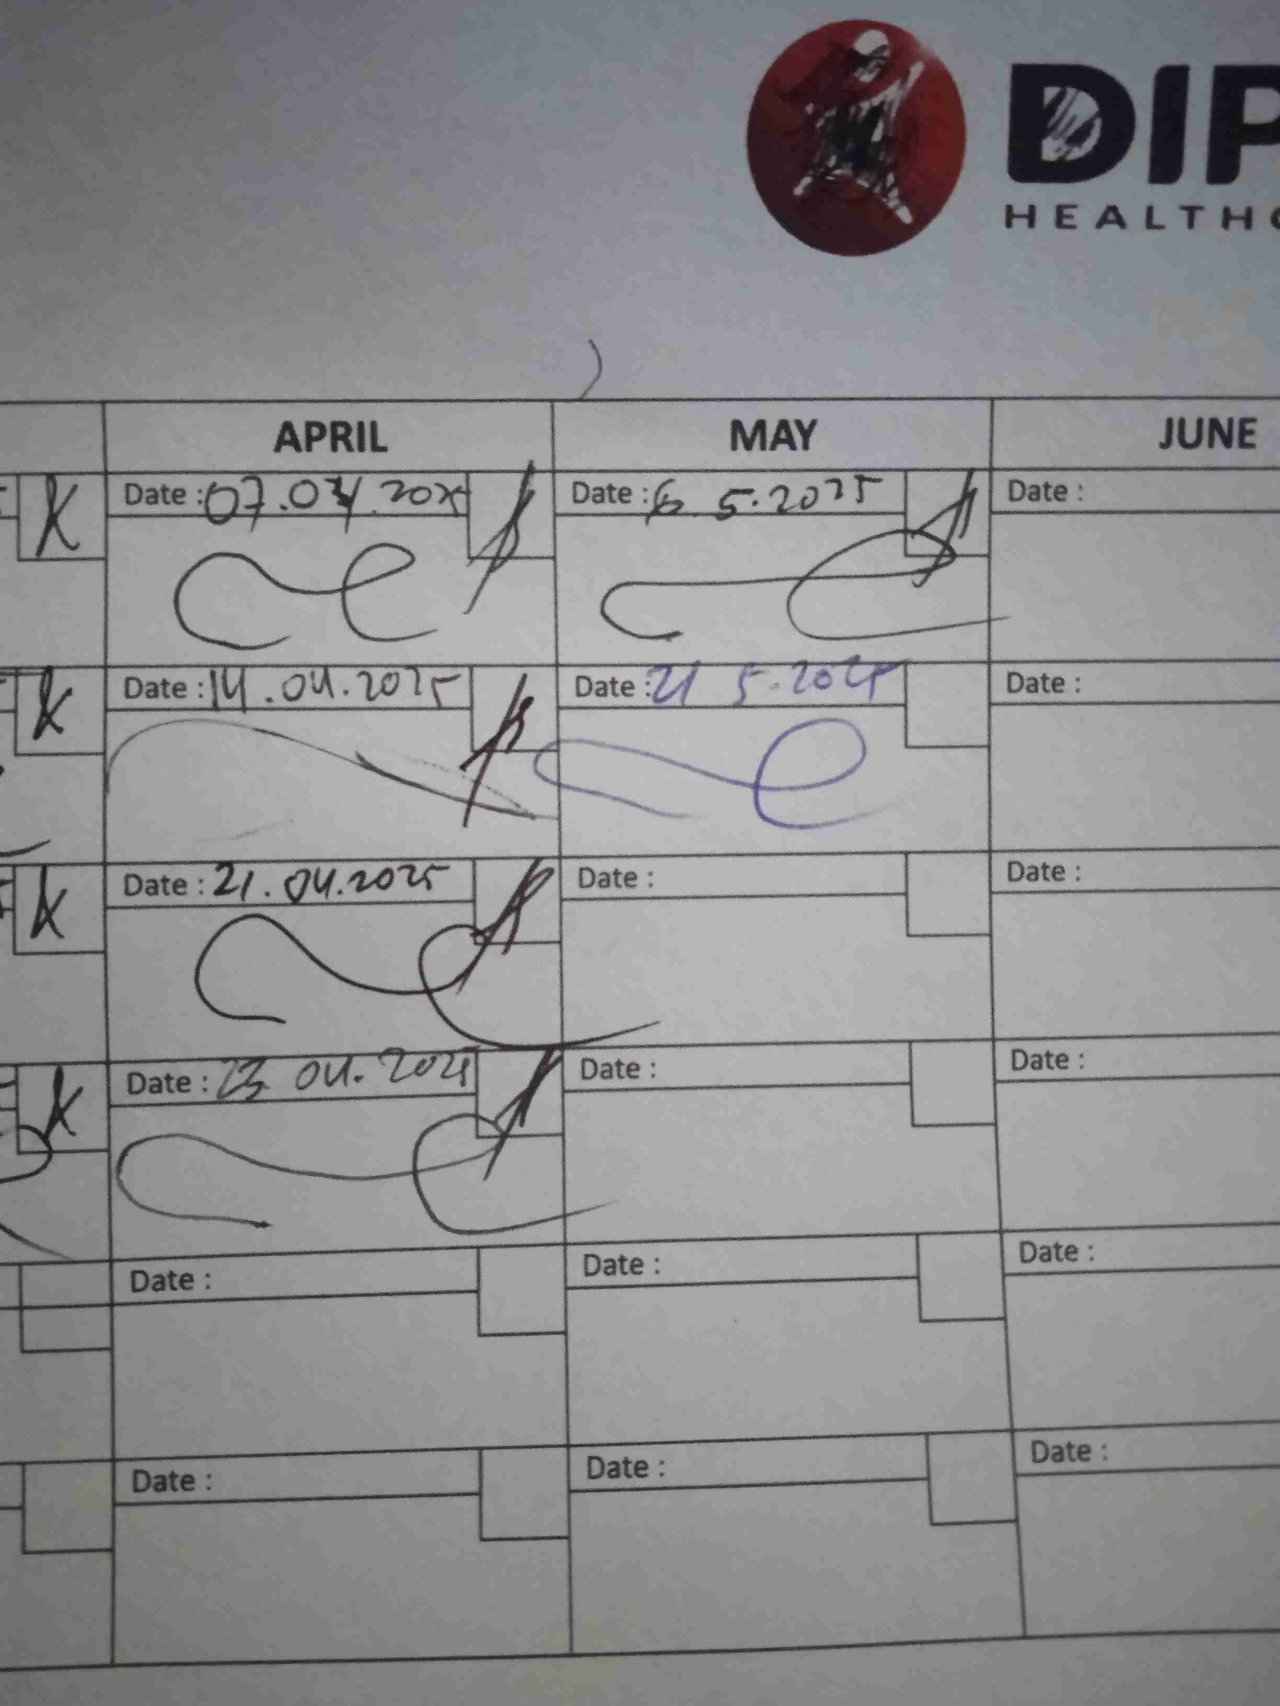 DIP
HEALTHC
APRIL MAY JUNE
K Date : 07.04.2025 Date : 6.5.2025 Date :
K Date : 14.04.2025 Date : 21 5.2025 Date :
K Date : 21.04.2025 Date : Date :
K Date : 23 04.2025 Date : Date :
Date : Date : Date :
Date : Date : Date :